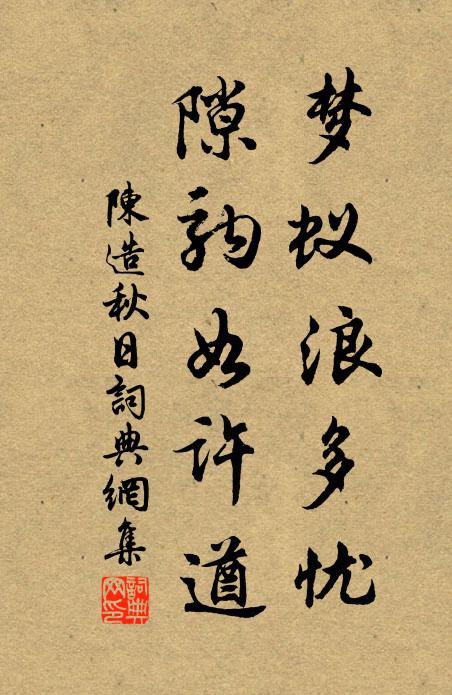 梦蚁浪多忧
隙駒如许遒
陳造秋日詞典網集
詞典網印